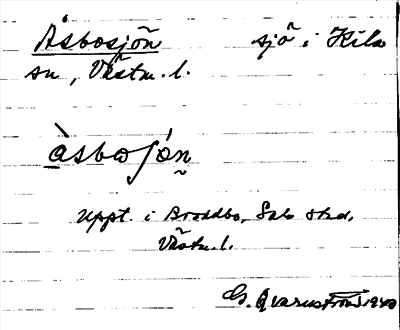 Åsbosjön sjö i Kila
sn, Västm. l.
àsbosjón
Uppt. i Broddbo, Sala stad,
Västm. l.
G. Qvarnström 1940